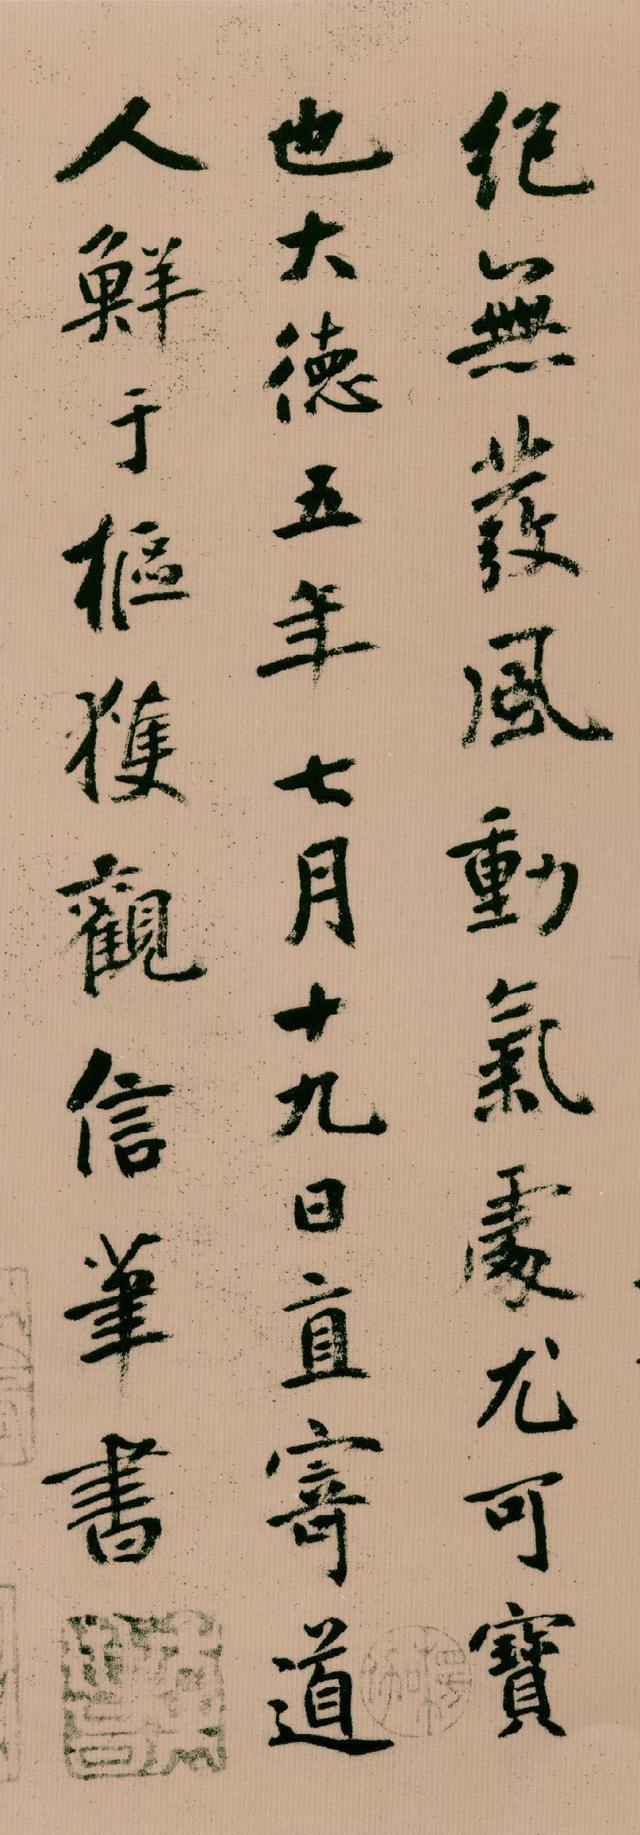 絕無蕟風動氣處尤可寶
也大德五年七月十九日直寄道
人鮮于樞獲觀信筆書